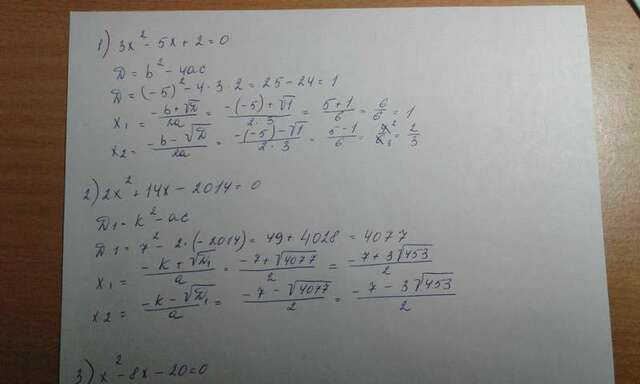 1) 3x² - 5x + 2 = 0
Д = b² - 4ac
Д = (-5)² - 4·3·2 = 25 - 24 = 1
x₁ = (-b + √Д)/2a = (-(-5) + √1)/(2·3) = (5+1)/6 = 6/6 = 1
x₂ = (-b - √Д)/2a = (-(-5) - √1)/(2·3) = (5-1)/6 = = 2/3
2) 2x² + 14x - 2014 = 0
Д₁ = k² - ac
Д₁ = 7² - 2·(-2014) = 49 + 4028 = 4077
x₁ = (-k + √Д₁)/a = (-7 + √4077)/2 = (-7 + 3√453)/2
x₂ = (-k - √Д₁)/a = (-7 - √4077)/2 = (-7 - 3√453)/2
3) x² - 8x - 20 = 0